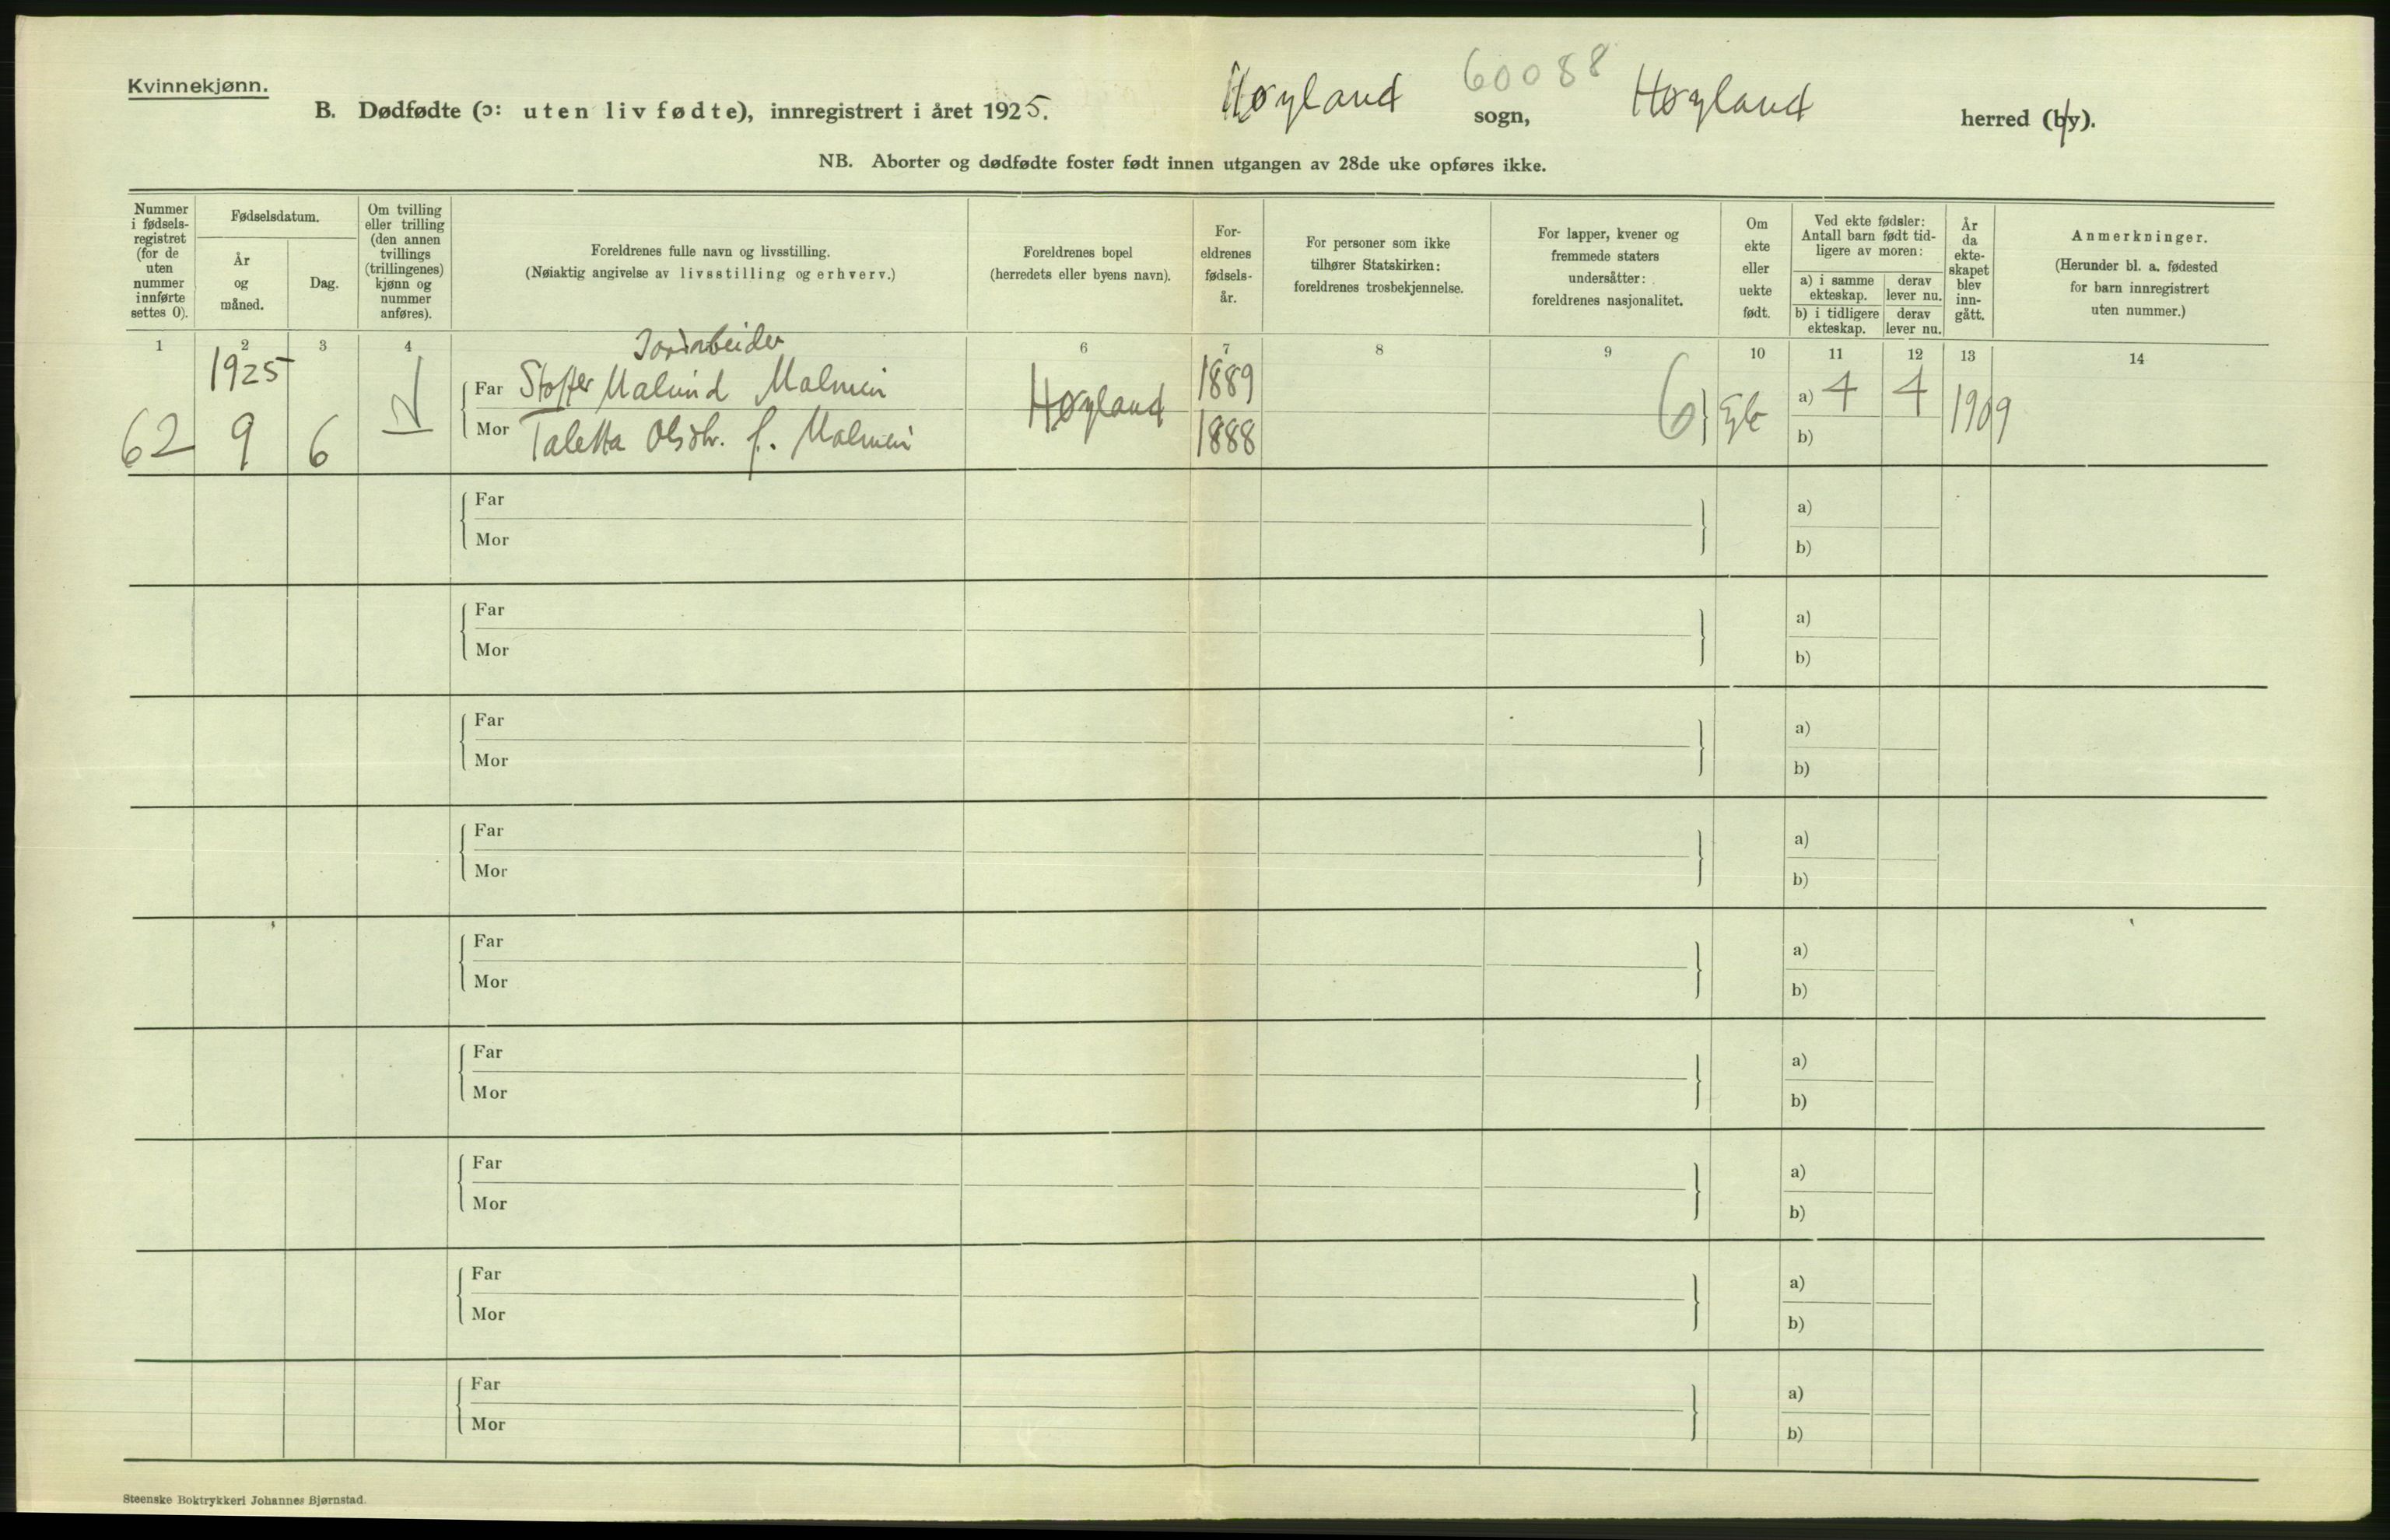 Kvinnekjønn.
60088
B. Dødfødte (ɔ: uten liv fødte), innregistrert i året 1925. Høyland sogn, Høyland herred (by).
NB. Aborter og dødfødte foster født innen utgangen av 28de uke opføres ikke.
Nummer
i fødsels-
registret
(for de
uten
nummer
innførte
settes 0).
Fødselsdatum.
År
og
måned.
Dag.
Om tvilling
eller trilling
(den annen
tvillings
(trillingenes)
kjønn og
nummer
anføres).
Foreldrenes fulle navn og livsstilling.
(Nøiaktig angivelse av livsstilling og erhverv.)
Foreldrenes bopel
(herredets eller byens navn).
For-
eldrenes
fødsels-
år.
For personer som ikke
tilhører Statskirken:
foreldrenes trosbekjennelse.
For lapper, kvener og
fremmede staters
undersåtter:
foreldrenes nasjonalitet.
Om
ekte
eller
uekte
født.
Ved ekte fødsler:
Antall barn født tid-
ligere av moren:
a) i samme
ekteskap.
derav
lever nu.
b) i tidligere
ekteskap.
derav
lever nu.
År
da
ekte-
skapet
blev
inn-
gått.
Anmerkninger.
(Herunder bl. a. fødested
for barn innregistrert
uten nummer.)
1 2 3 4 6 7 8 9 10 11 12 13 14
Jordarbeider
1925
Far Stoffer Malmin 1889 a) 4 4
62 9 6 Høyland 6 1909
Mor Taletta Olsdtr. f. Malmin 1888 b)
Far a)
Mor b)
Far a)
Mor b)
Far a)
Mor b)
Far a)
Mor b)
Far a)
Mor b)
Far a)
Mor b)
Far a)
Mor b)
Far a)
Mor b)
Far a)
Mor b)
Steenske Boktrykkeri Johannes Bjørnstad.